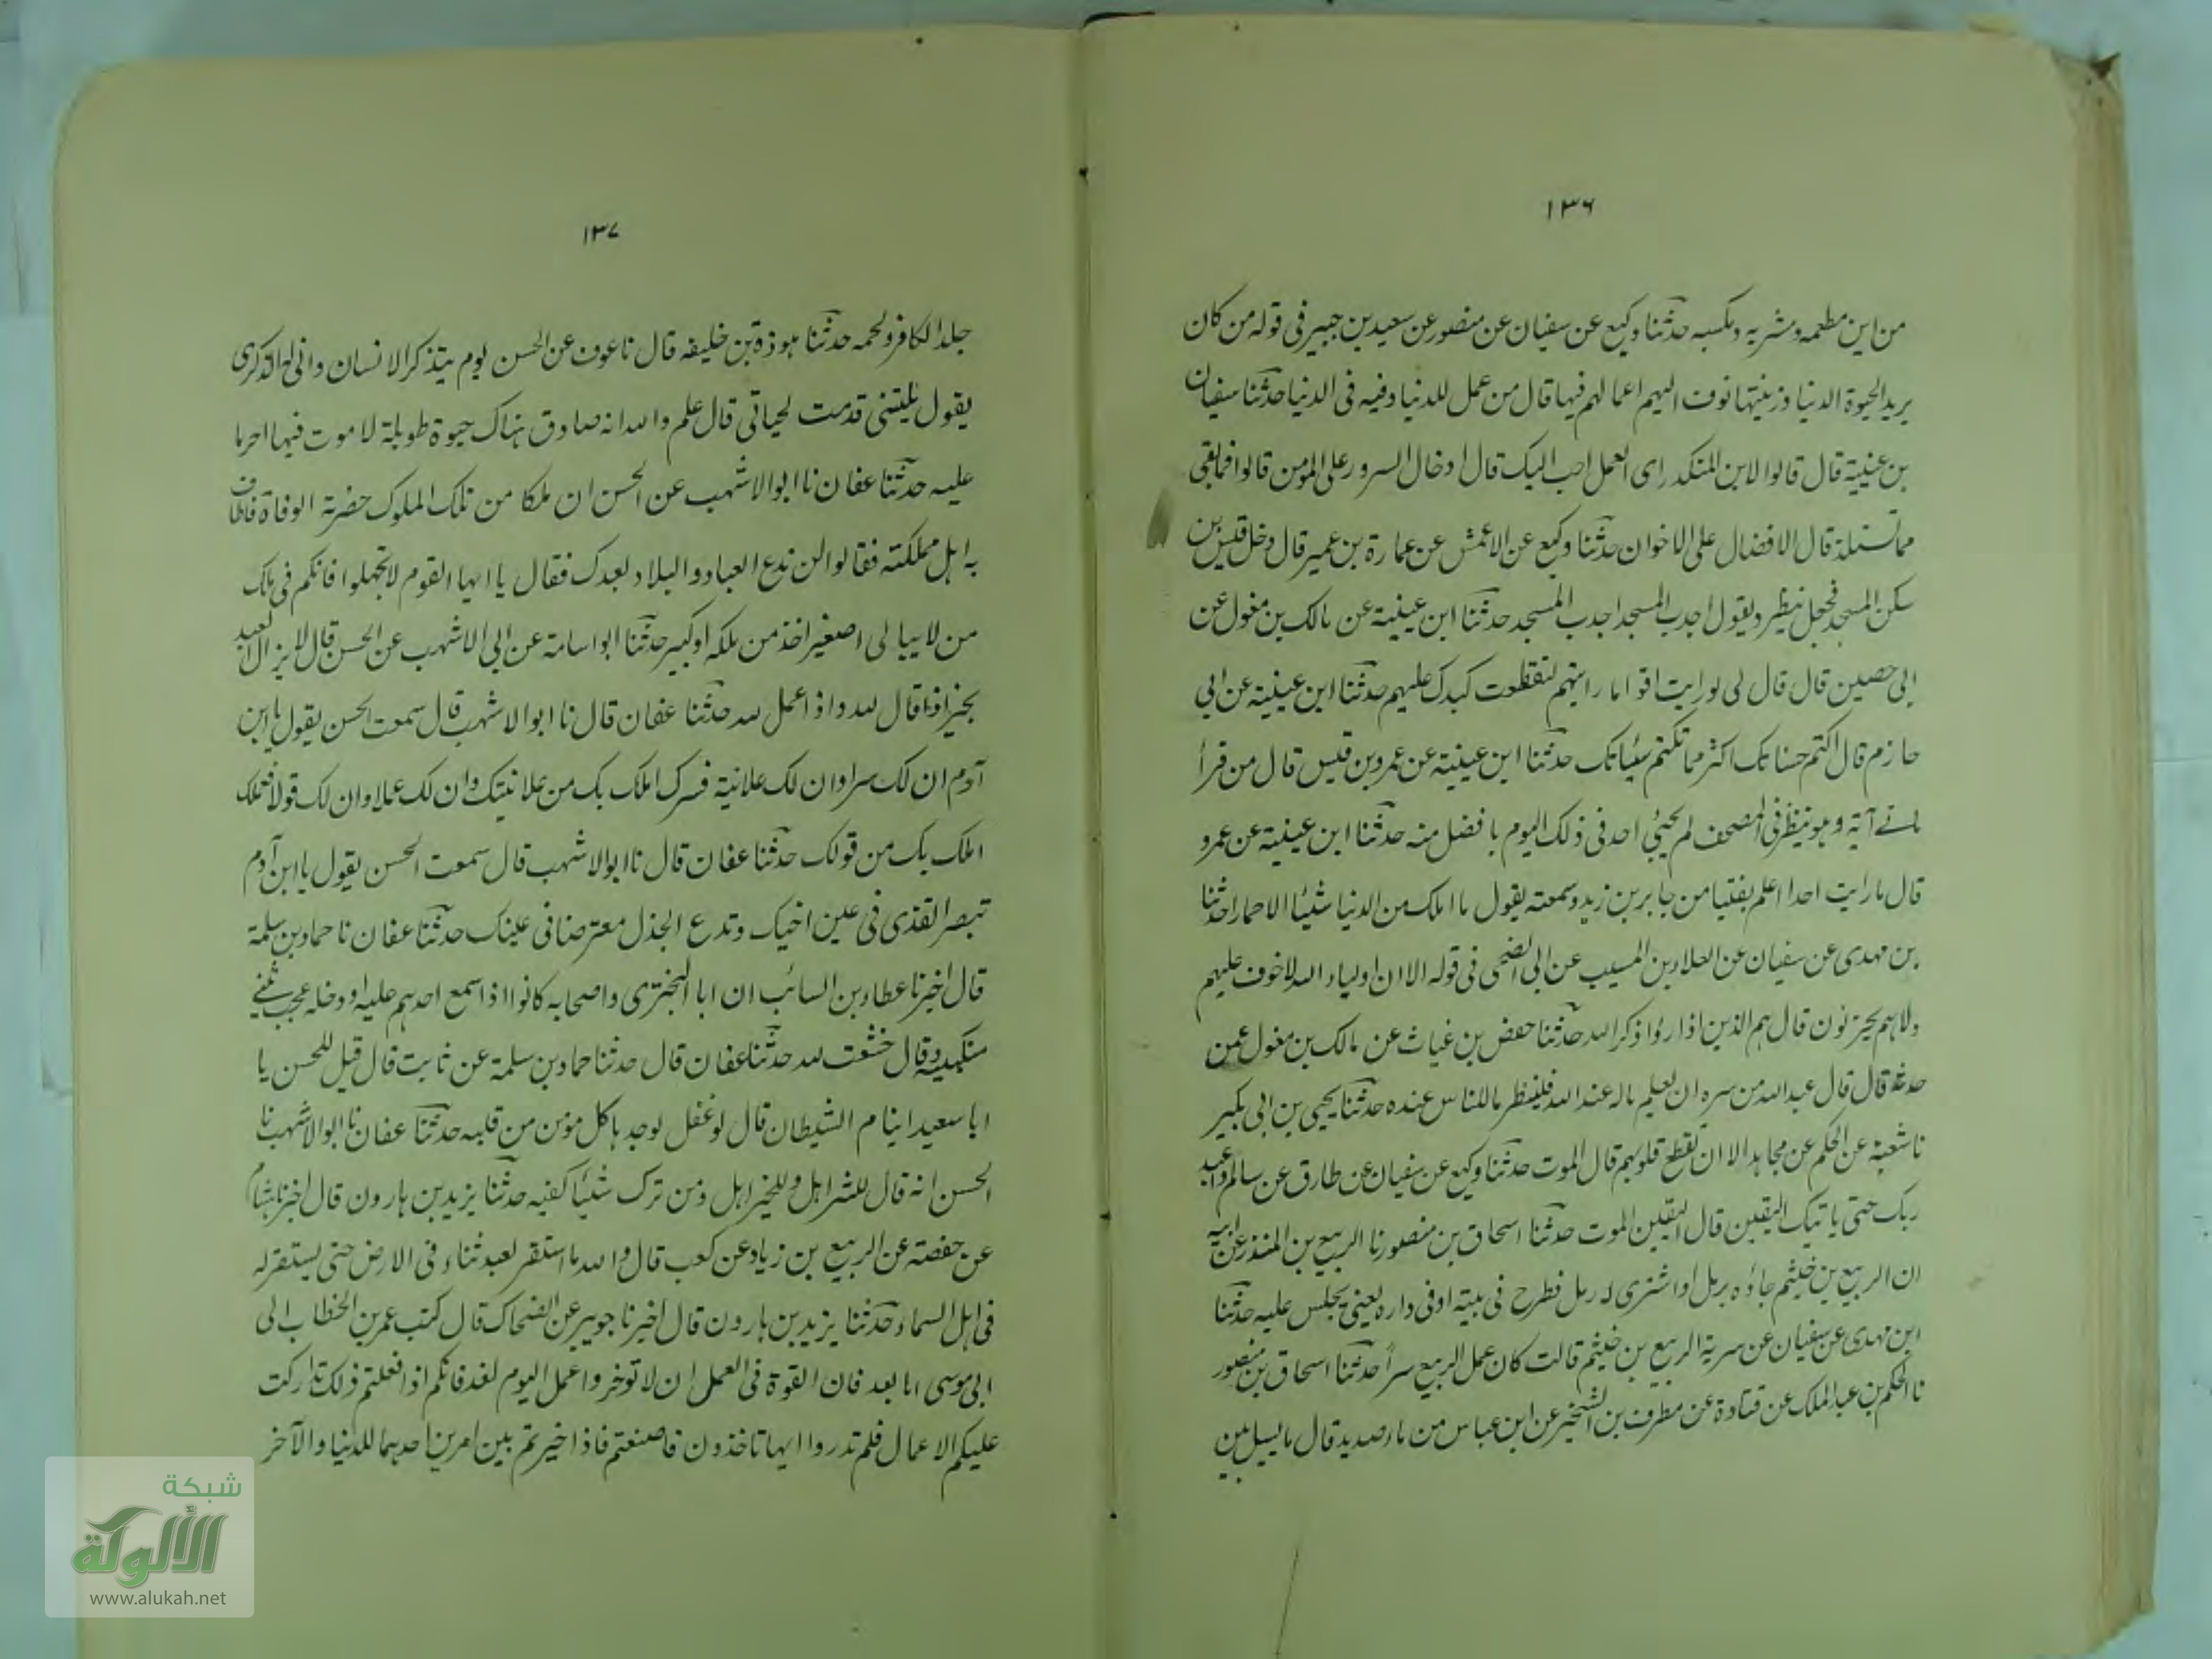 ١٣٦
من اين مطعمه ومشربه ومكسبه حدثنا وكيع عن سفيان عن منصور عن سعيد بن جبير فى قوله من كان
يريد الحيوة الدنيا وزينتها نوف اليهم اعمالهم فيها قال من عمل للدنيا وفيه فى الدنيا حدثنا سفيان
بن عيينة قال قالوا لابن المنكدر اى العمل احب اليك قال ادخال السرور على المومن قالوا فما بقى
مما تستلذ قال الافضال على الاخوان حدثنا وكيع عن الاعمش عن عمارة بن عمير قال دخل قيس بن
سكن المسجد فجعل ينظر ويقول اجدب المسجد اجدب المسجد حدثنا ابن عيينة عن مالك بن مغول عن
ابى حصين قال قال لى لو رايت اقواما رايتهم لتقطعت كبدك عليهم حدثنا ابن عيينة عن ابى
حازم قال اكتم حسناتك اكثر مما تكتم سيئاتك حدثنا ابن عيينة عن عمرو بن قيس قال من قرأ
مائے آية وهو ينظر فى المصحف لم يجيئ احد فى ذلك اليوم بافضل منه حدثنا ابن عيينة عن عمرو
قال ما رايت احدا اعلم بفتيا من جابر بن زيد وسمعته يقول ما املك من الدنيا شيئا الا حمارا حدثنا
بن مهدى عن سفيان عن العلاء بن المسيب عن ابى الضحى فى قوله الا ان اولياء الله لا خوف عليهم
ولا هم يحزنون قال هم الذين اذا رؤا ذكر الله حدثنا حفص بن غياث عن مالك بن مغول عمن
حدثه قال قال عبد الله من سره ان يعلم ماله عند الله فلينظر ما للناس عنده حدثنا يحيى بن ابى بكير
نا شعبة عن الحكم عن مجاهد الا ان تقطع قلوبهم قال الموت حدثنا وكيع عن سفيان عن طارق عن سالم واعبد
ربك حتى ياتيك اليقين قال اليقين الموت حدثنا اسحاق بن منصور نا الربيع بن المنذر عن ابيه
ان الربيع بن خيثم جاؤه برمل او اشترى له رمل فطرح فى بيته او فى داره يعنى يجلس عليه حدثنا
ابن مهدى عن سفيان عن سرية الربيع بن خيثم قالت كان عمل الربيع سراً حدثنا اسحاق بن منصور
نا الحكم بن عبد الملك عن قتادة عن مطرف بن الشخير عن ابن عباس من ماء صديد قال ما يسيل بين
١٣٧
جلد الكافر ولحمه حدثنا هوذة بن خليفه قال نا عوف عن الحسن يوم يتذكر الانسان وانى له الذكرى
يقول يليتنى قدمت لحياتى قال علم والله انه صادق هناك حيوة طويلة لا موت فيها اخر ما
عليه حدثنا عفان نا ابو الاشهب عن الحسن ان ملكا من تلك الملوك حضرته الوفاة فاطاف
به اهل مملكته فقالوا لن ندع العباد والبلاد بعدك فقال يا ايها القوم لا تجهلوا فانكم فى ملك
من لا يبالى اصغيرا اخذ من ملكه او كبير حدثنا ابو اسامة عن ابى الاشهب عن الحسن قال لا يزال العبد
بخير اذا قال لله واذا عمل لله حدثنا عفان قال نا ابو الاشهب قال سمعت الحسن يقول يا ابن
آدم ان لك سرا وان لك علانية فسرك املك بك من علانيتك وان لك عملا وان لك قولا فعملك
املك بك من قولك حدثنا عفان قال نا ابو الاشهب قال سمعت الحسن يقول يا ابن آدم
تبصر القذى فى عين اخيك وتدع الجذل معترضا فى عينك حدثنا عفان نا حماد بن سلمة
قال اخبرنا عطاء بن السائب ان ابا البخترى واصحابه كانوا اذا سمع احدهم عليه او دخله عجب ثنے
منكبيه وقال خشعت لله حدثنا عفان قال حدثنا حماد بن سلمة عن ثابت قال قيل للحسن يا
ابا سعيد اينام الشيطان قال لو غفل لوجدها كل مؤمن من قلبه حدثنا عفان نا ابو الاشهب نا
الحسن انه قال للشر اهل وللخير اهل ومن ترك شيئا كفيه حدثنا يزيد بن هارون قال اخبرنا هشام
عن حفصة عن الربيع بن زياد عن كعب قال والله ما استقر لعبد ثناء فى الارض حتى يستقر له
فى اهل السماء حدثنا يزيد بن هارون قال اخبرنا جويبر عن الضحاك قال كتب عمر بن الخطاب الى
ابى موسى اما بعد فان القوة فى العمل ان لا توخروا عمل اليوم لغد فانكم اذا فعلتم ذلك تداركت
عليكم الاعمال فلم تدروا ايها تاخذون فاصنعتم فاذا خيرتم بين امرين احدهما للدنيا والآخر
شبكة
الألوكة
www.alukah.net